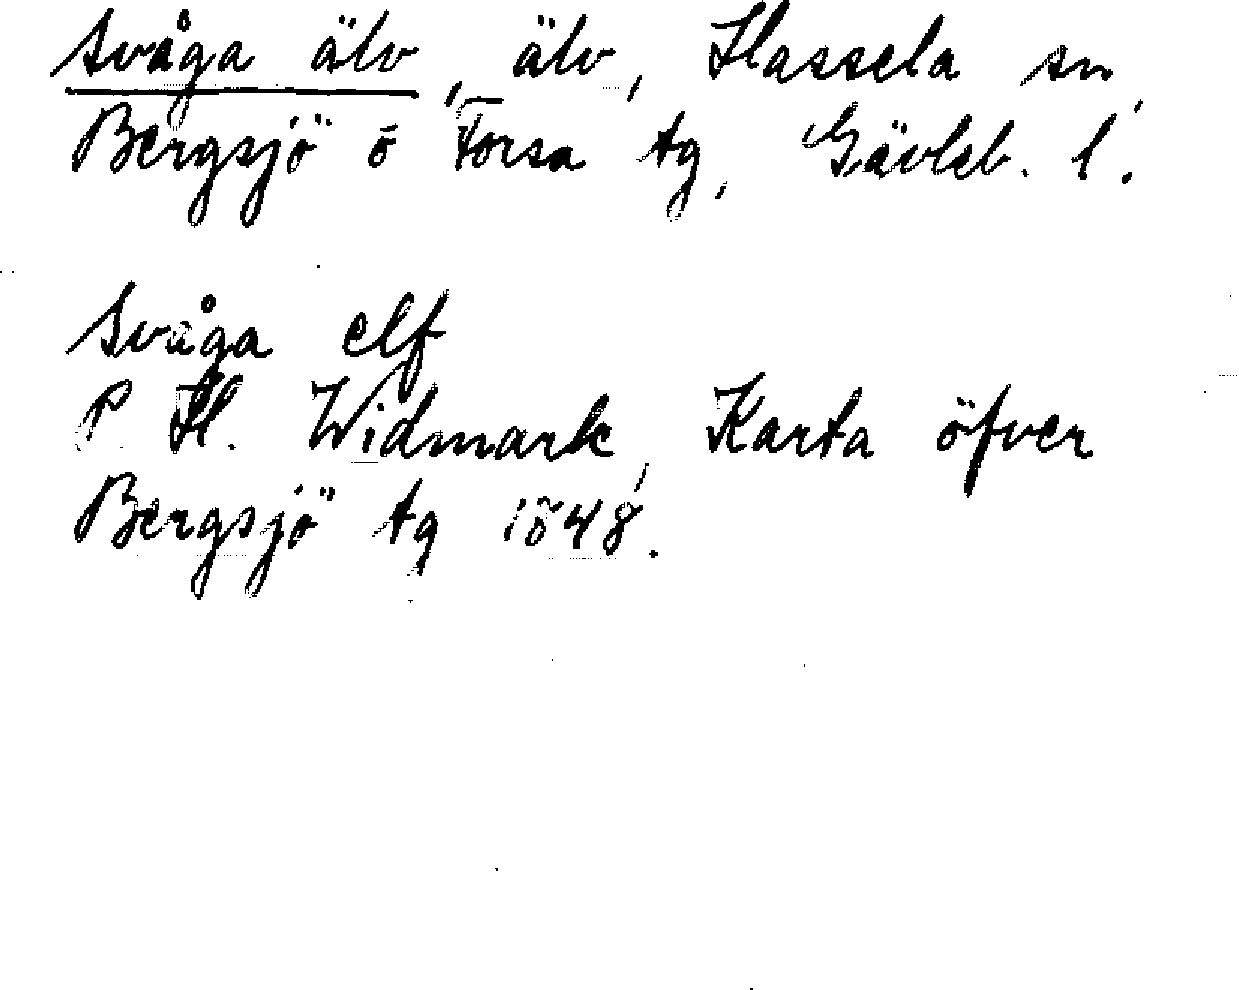 Svåga älv, älv, Hassela sn,
Bergsjö o Forsa tg, Gävleb. l.
Svåga elf
P. H. Widmark, Karta öfver
Bergsjö tg 1848.